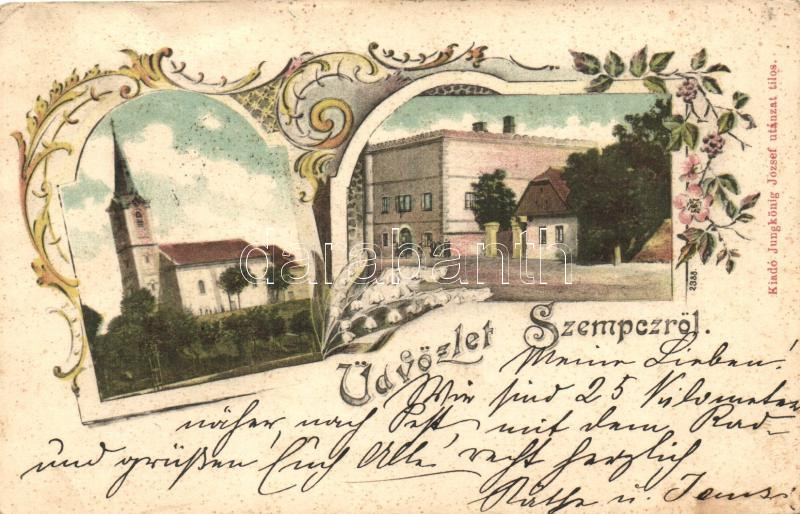 Üdvözlet Szempczről.
Kiadó Jungkönig József utánzat tilos.
2388.
darabanth
Meine Lieben!
Wir sind 25 Kilometer
näher nach Pest mit dem Rad
und grüßen Euch Alle recht herzlich
Käthe u.